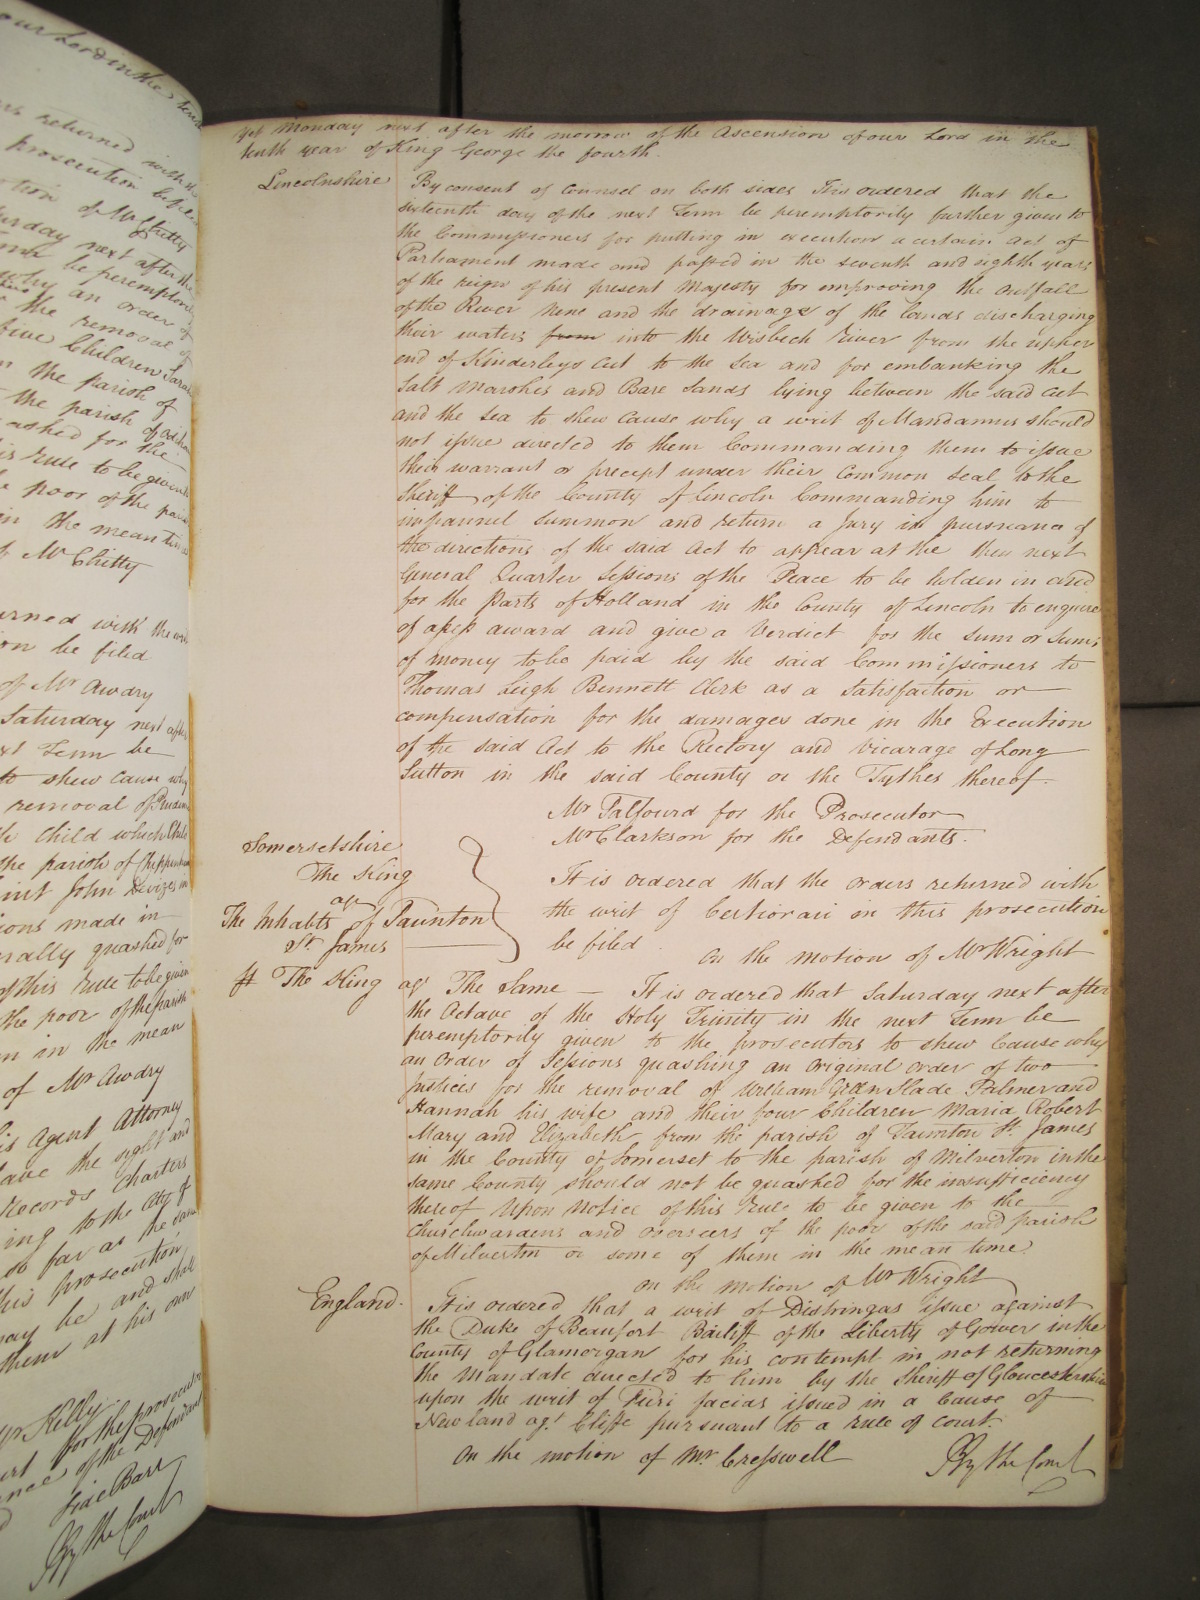 our Lord in the tenth
returned with the
prosecution be filed
of Mr Chitty
Saturday next after the
Term be peremptorily
why an order of
the removal of
five Children Sarah
the parish of
the parish of
asked for the
Rule to be given
poor of the parish
in the mean time
Mr Chitty
returned with the writ
be filed
of Mr Awdry
Saturday next after
Term be
to shew cause why
removal of
Child which
the parish of Chippenham
Saint John Devizes in
made in
quashed for
of this Rule to be given
the poor of the parish
in the mean
of Mr Awdry
his Agent Attorney
have the sight and
Records Charters
to the City of
so far as the same
this prosecution
may be and shall
them at his own
Mr Kelly
for the prosecutor
of the Defendant
Side Barr
By the Court
Yet Monday next after the morrow of the Ascension of our Lord in the
tenth year of King George the fourth.
Lincolnshire By consent of Counsel on both sides It is ordered that the
sixteenth day of the next Term be peremptorily further given to
the Commissioners for putting in execution a certain Act of
Parliament made and passed in the seventh and eighth years
of the reign of his present Majesty for improving the outfall
of the River Nene and the drainage of the lands discharging
their waters from into the Wisbech River from the upper
end of Kinderleys Cut to the Sea and for embanking the
Salt Marshes and Bare Sands lying between the said Cut
and the Sea to shew cause why a writ of Mandamus should
not issue directed to them Commanding them to issue
their warrant or precept under their Common Seal to the
Sheriff of the County of Lincoln Commanding him to
impannel summon and return a Jury in pursuance of
the directions of the said Act to appear at the then next
General Quarter Sessions of the Peace to be holden in and
for the Parts of Holland in the County of Lincoln to enquire
of assess award and give a Verdict for the sum or sums
of money to be paid by the said Commissioners to
Thomas Leigh Bennett Clerk as a Satisfaction or
compensation for the damages done in the Execution
of the said Act to the Rectory and Vicarage of Long
Sutton in the said County or the Tythes thereof.
Mr Talfourd for the Prosecutor
Mr Clarkson for the Defendants.
Somersetshire
The King
agt
The Inhabts of Taunton
St. James
It is ordered that the orders returned with
the writ of Certiorari in this prosecution
be filed
On the motion of Mr Wright
The King agt The Same — It is ordered that Saturday next after
the Octave of the Holy Trinity in the next Term be
peremptorily given to the prosecutors to shew Cause why
an Order of Sessions quashing an original order of two
Justices for the removal of William Slade Palmer and
Hannah his wife and their four Children Maria Robert
Mary and Elizabeth from the parish of Taunton St. James
in the County of Somerset to the parish of Milverton in the
same County should not be quashed for the insufficiency
thereof Upon Notice of this Rule to be given to the
Churchwardens and overseers of the poor of the said parish
of Milverton or some of them in the mean time.
On the Motion of Mr Wright
England. It is ordered that a writ of Distringas issue against
the Duke of Beaufort Bailiff of the Liberty of Gower in the
County of Glamorgan for his contempt in not returning
the Mandate directed to him by the Sheriff of Gloucestershire
upon the writ of Fieri facias issued in a Cause of
Newland agt. Cliffe pursuant to a rule of Court.
On the motion of Mr. Cresswell
By the Court